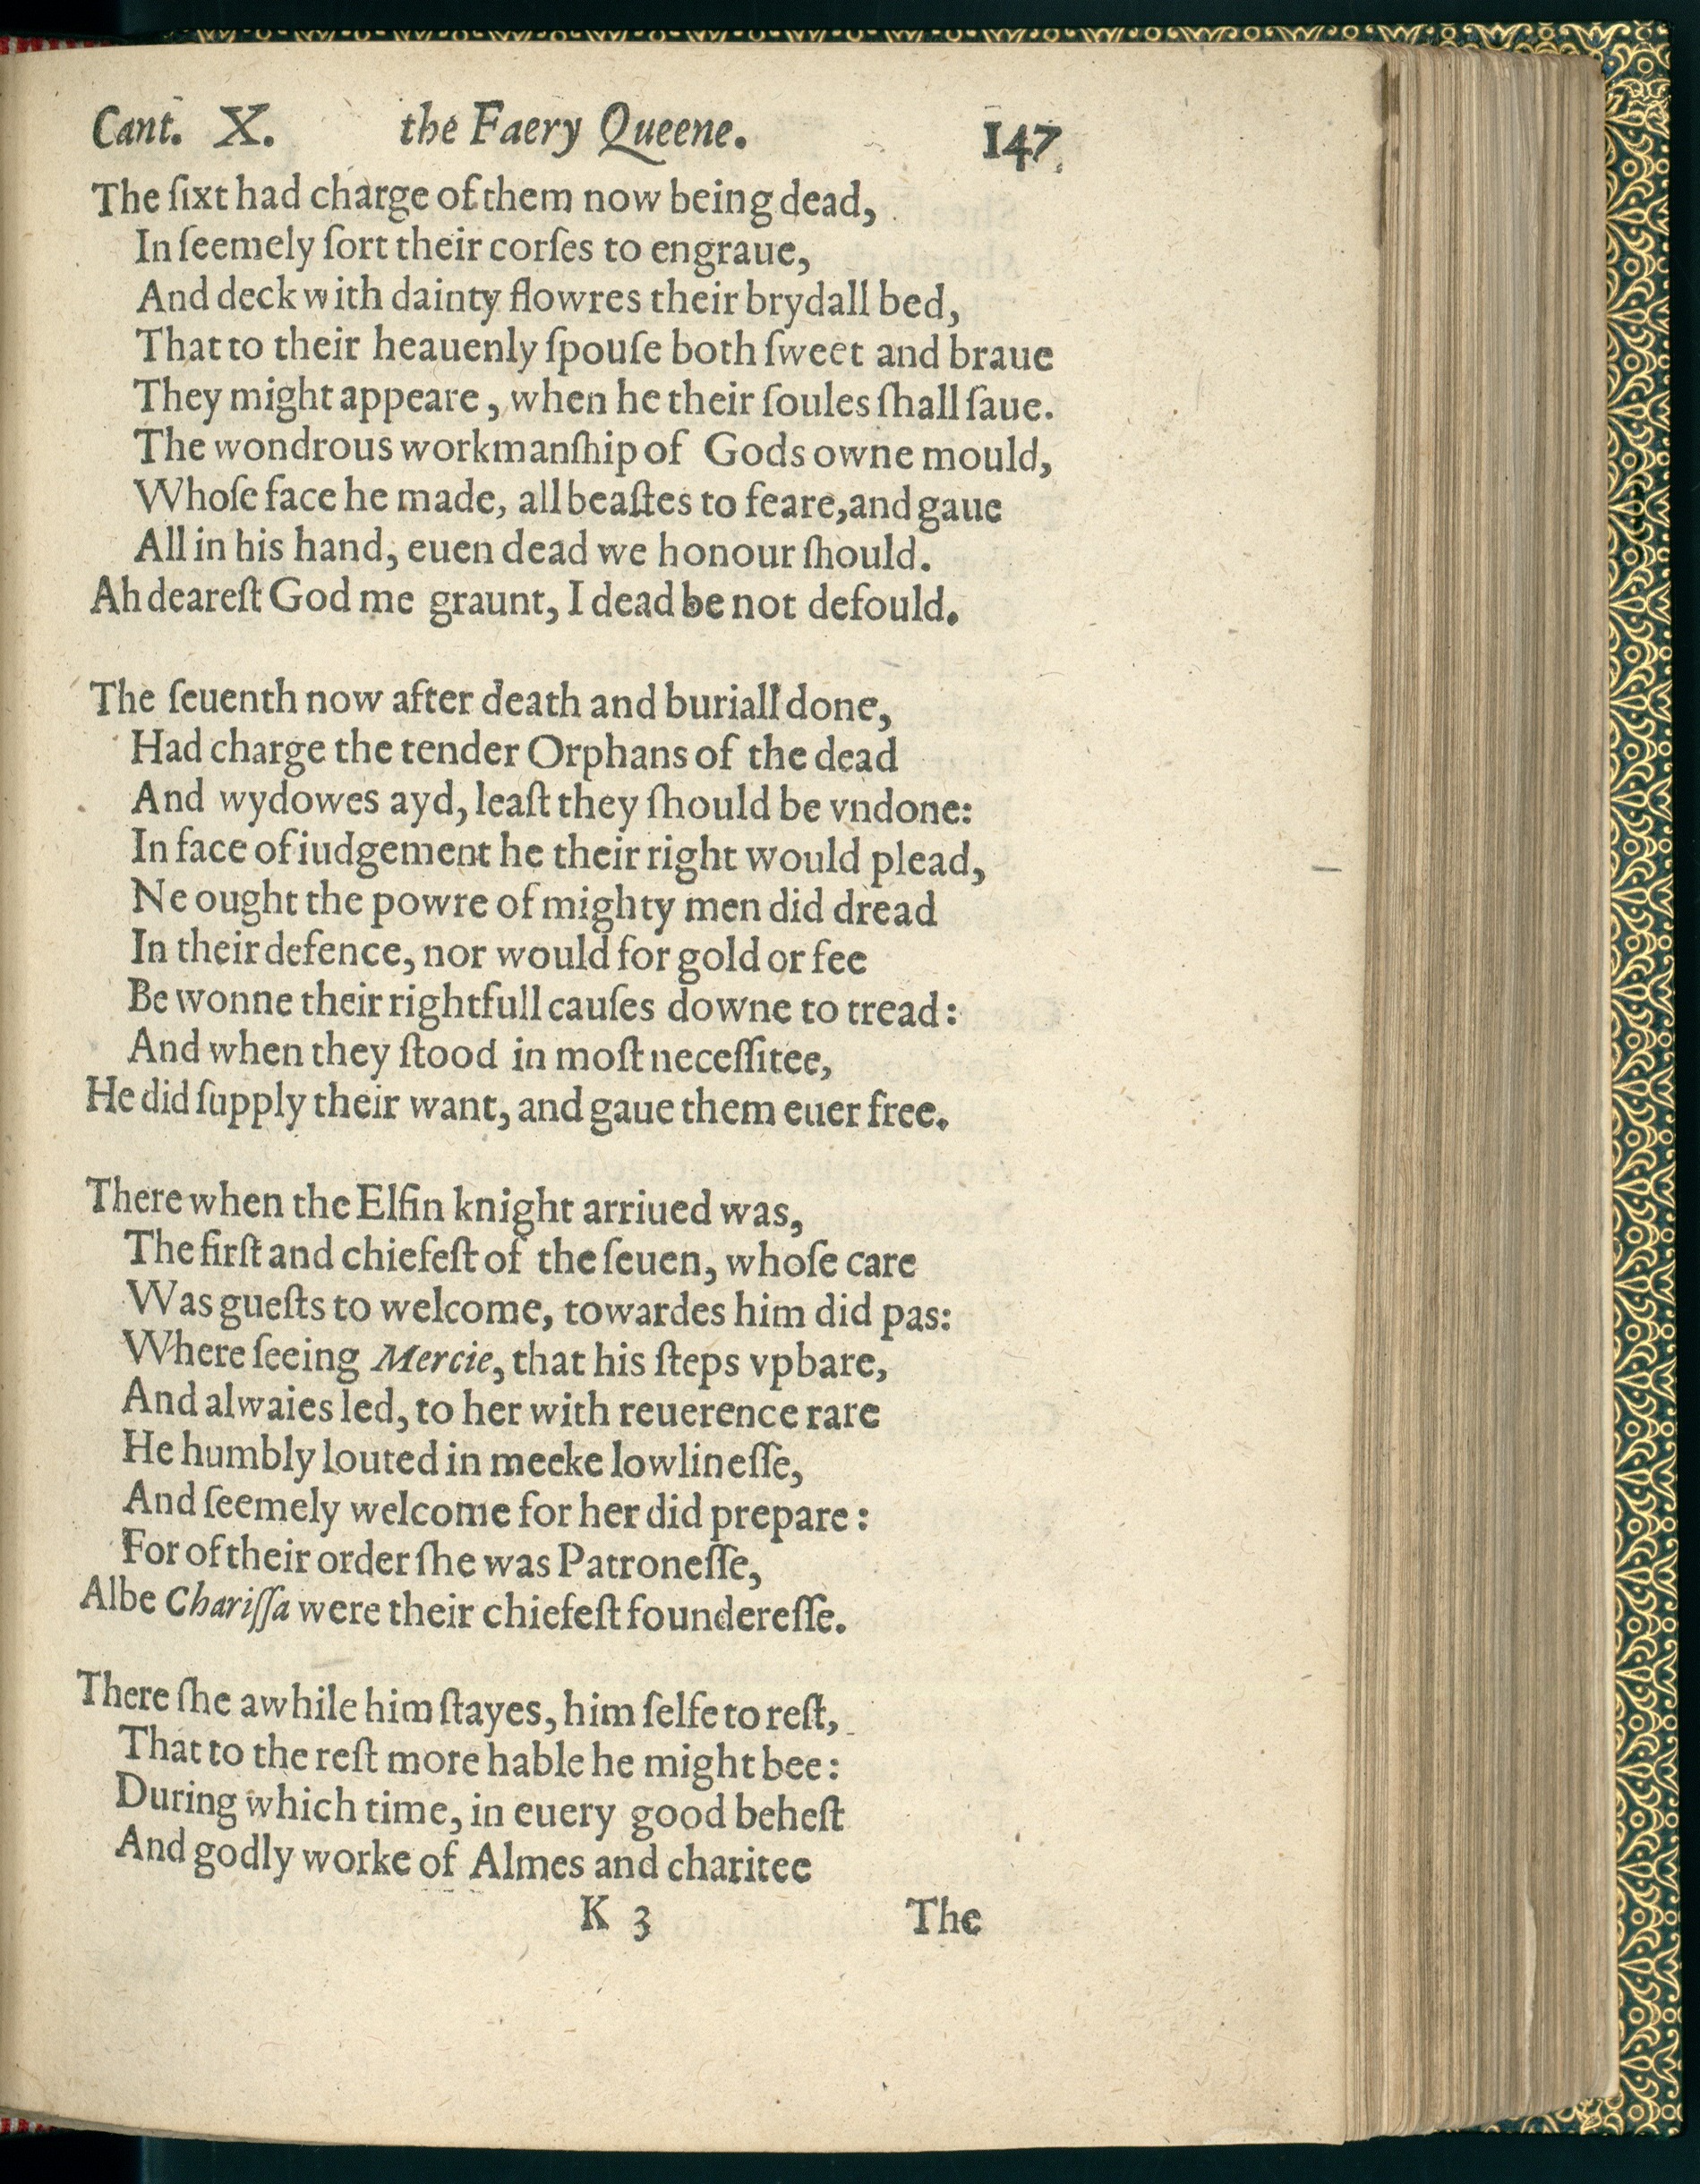 Cant. X. the Faery Queene. 147
The ſixt had charge of them now being dead,
In ſeemely ſort their corſes to engraue,
And deck with dainty flowres their brydall bed,
That to their heauenly ſpouſe both ſweet and braue
They might appeare, when he their ſoules ſhall ſaue.
The wondrous workmanſhip of Gods owne mould,
Whoſe face he made, all beaſtes to feare, and gaue
All in his hand, euen dead we honour ſhould.
Ah deareſt God me graunt, I dead be not defould.
The ſeuenth now after death and buriall done,
Had charge the tender Orphans of the dead
And wydowes ayd, leaſt they ſhould be vndone:
In face of iudgement he their right would plead,
Ne ought the powre of mighty men did dread
In their defence, nor would for gold or fee
Be wonne their rightfull cauſes downe to tread:
And when they ſtood in moſt neceſſitee,
He did ſupply their want, and gaue them euer free.
There when the Elfin knight arriued was,
The firſt and chiefeſt of the ſeuen, whoſe care
Was gueſts to welcome, towardes him did pas:
Where ſeeing Mercie, that his ſteps vpbare,
And alwaies led, to her with reuerence rare
He humbly louted in meeke lowlineſſe,
And ſeemely welcome for her did prepare:
For of their order ſhe was Patroneſſe,
Albe Chariſſa were their chiefeſt foundereſſe.
There ſhe awhile him ſtayes, him ſelfe to reſt,
That to the reſt more hable he might bee:
During which time, in euery good beheſt
And godly worke of Almes and charitee
K 3 The